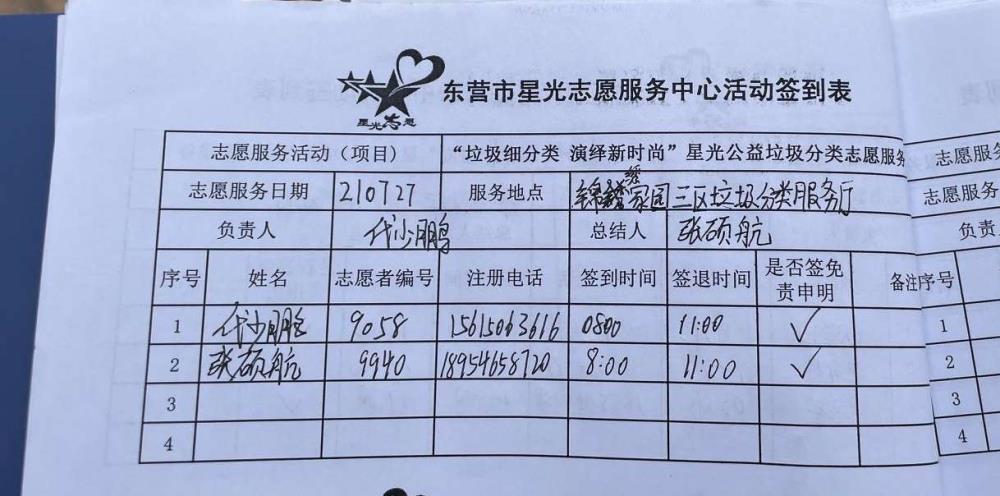 星光志愿
东营市星光志愿服务中心活动签到表
志愿服务活动（项目） “垃圾细分类 演绎新时尚”星光公益垃圾分类志愿服务
志愿服务日期 210727 服务地点 锦绣家园三区垃圾分类服务厅
负责人 代少鹏 总结人 张硕航
序号 姓名 志愿者编号 注册电话 签到时间 签退时间 是否签免责申明 备注
1 代少鹏 9058 15615063616 0800 11:00 ✓
2 张硕航 9940 18954658720 8:00 11:00 ✓
3
4
志愿服
志愿服务
负责人
序号
1
2
3
4